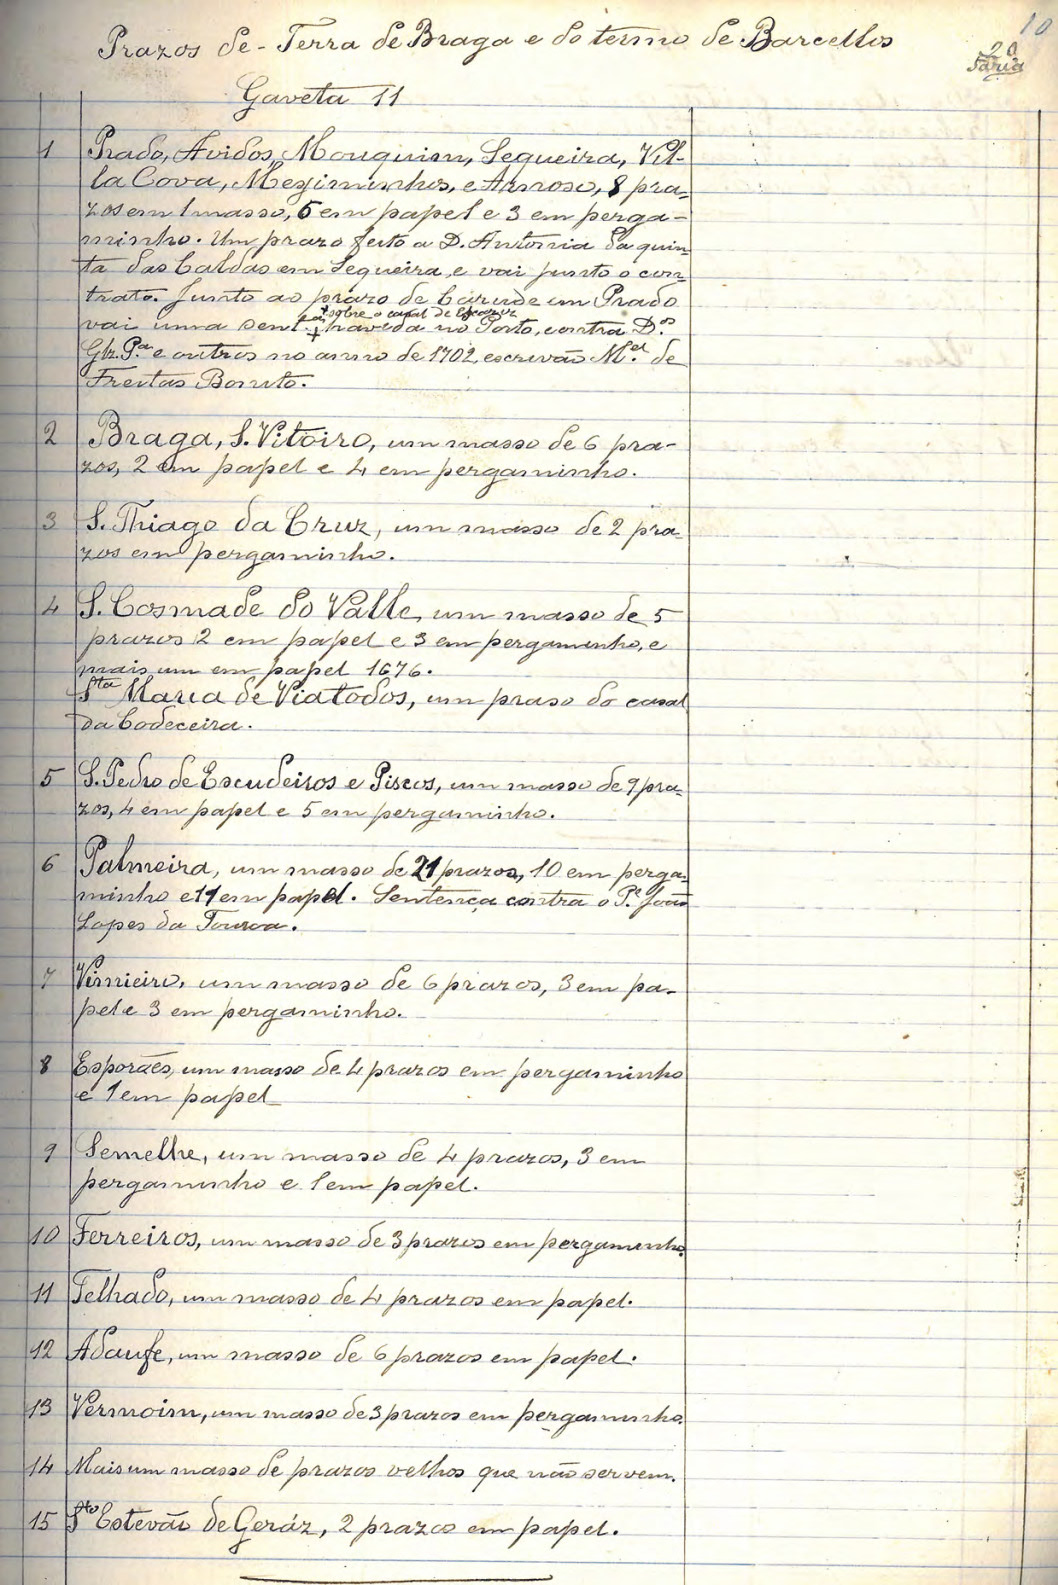 10
Prazos de Terra de Braga e do termo de Barcellos
Faria
Gaveta 11
1 Prado, Avidos, Mouquim, Sequeira, Vil-
la Cova, Mezimunhos, e Arnoso, 8 pra-
zos em 1 masso, 5 em papel e 3 em perga-
minho. Um prazo feito a D. Antonia da quin-
ta das Caldas em Sequeira, e vai junto o con-
trato. Junto ao prazo de Carude em Prado
sobre o casal de
vai uma sent.ça havida no Porto, contra D.os
Glz. P.a e outros no anno de 1702, escrivão M.el de
Freitas Barreto.
2 Braga, S. Vitoiro, um masso de 6 pra-
zos, 2 em papel e 4 em pergaminho.
3 S. Thiago da Cruz, um masso de 2 pra-
zos em pergaminho.
4 S. Cosmade do Valle, um masso de 5
prazos 2 em papel e 3 em pergaminho, e
mais um em papel 1676.
Sta Maria de Viatodos, um praso do casal
da Codeceira.
5 S. Pedro de Escudeiros e Piscos, um masso de 9 pra-
zos, 4 em papel e 5 em pergaminho.
6 Palmeira, um masso de 21 prazos, 10 em perga-
minho e 11 em papel. Sentença contra o P.e João
Lopes da Fonsca.
7 Vimieiro, um masso de 6 prazos, 3 em pa-
pel e 3 em pergaminho.
8 Esporães, um masso de 4 prazos em pergaminho
e 1 em papel
9 Semelhe, um masso de 4 prazos, 3 em
pergaminho e 1 em papel.
10 Ferreiros, um masso de 3 prazos em pergaminho.
11 Telhado, um masso de 4 prazos em papel.
12 Adaufe, um masso de 6 prazos em papel.
13 Vermoim, um masso de 3 prazos em pergaminho.
14 Mais um masso de prazos velhos que não servem.
15 Sto Estevão de Geráz, 2 prazos em papel.